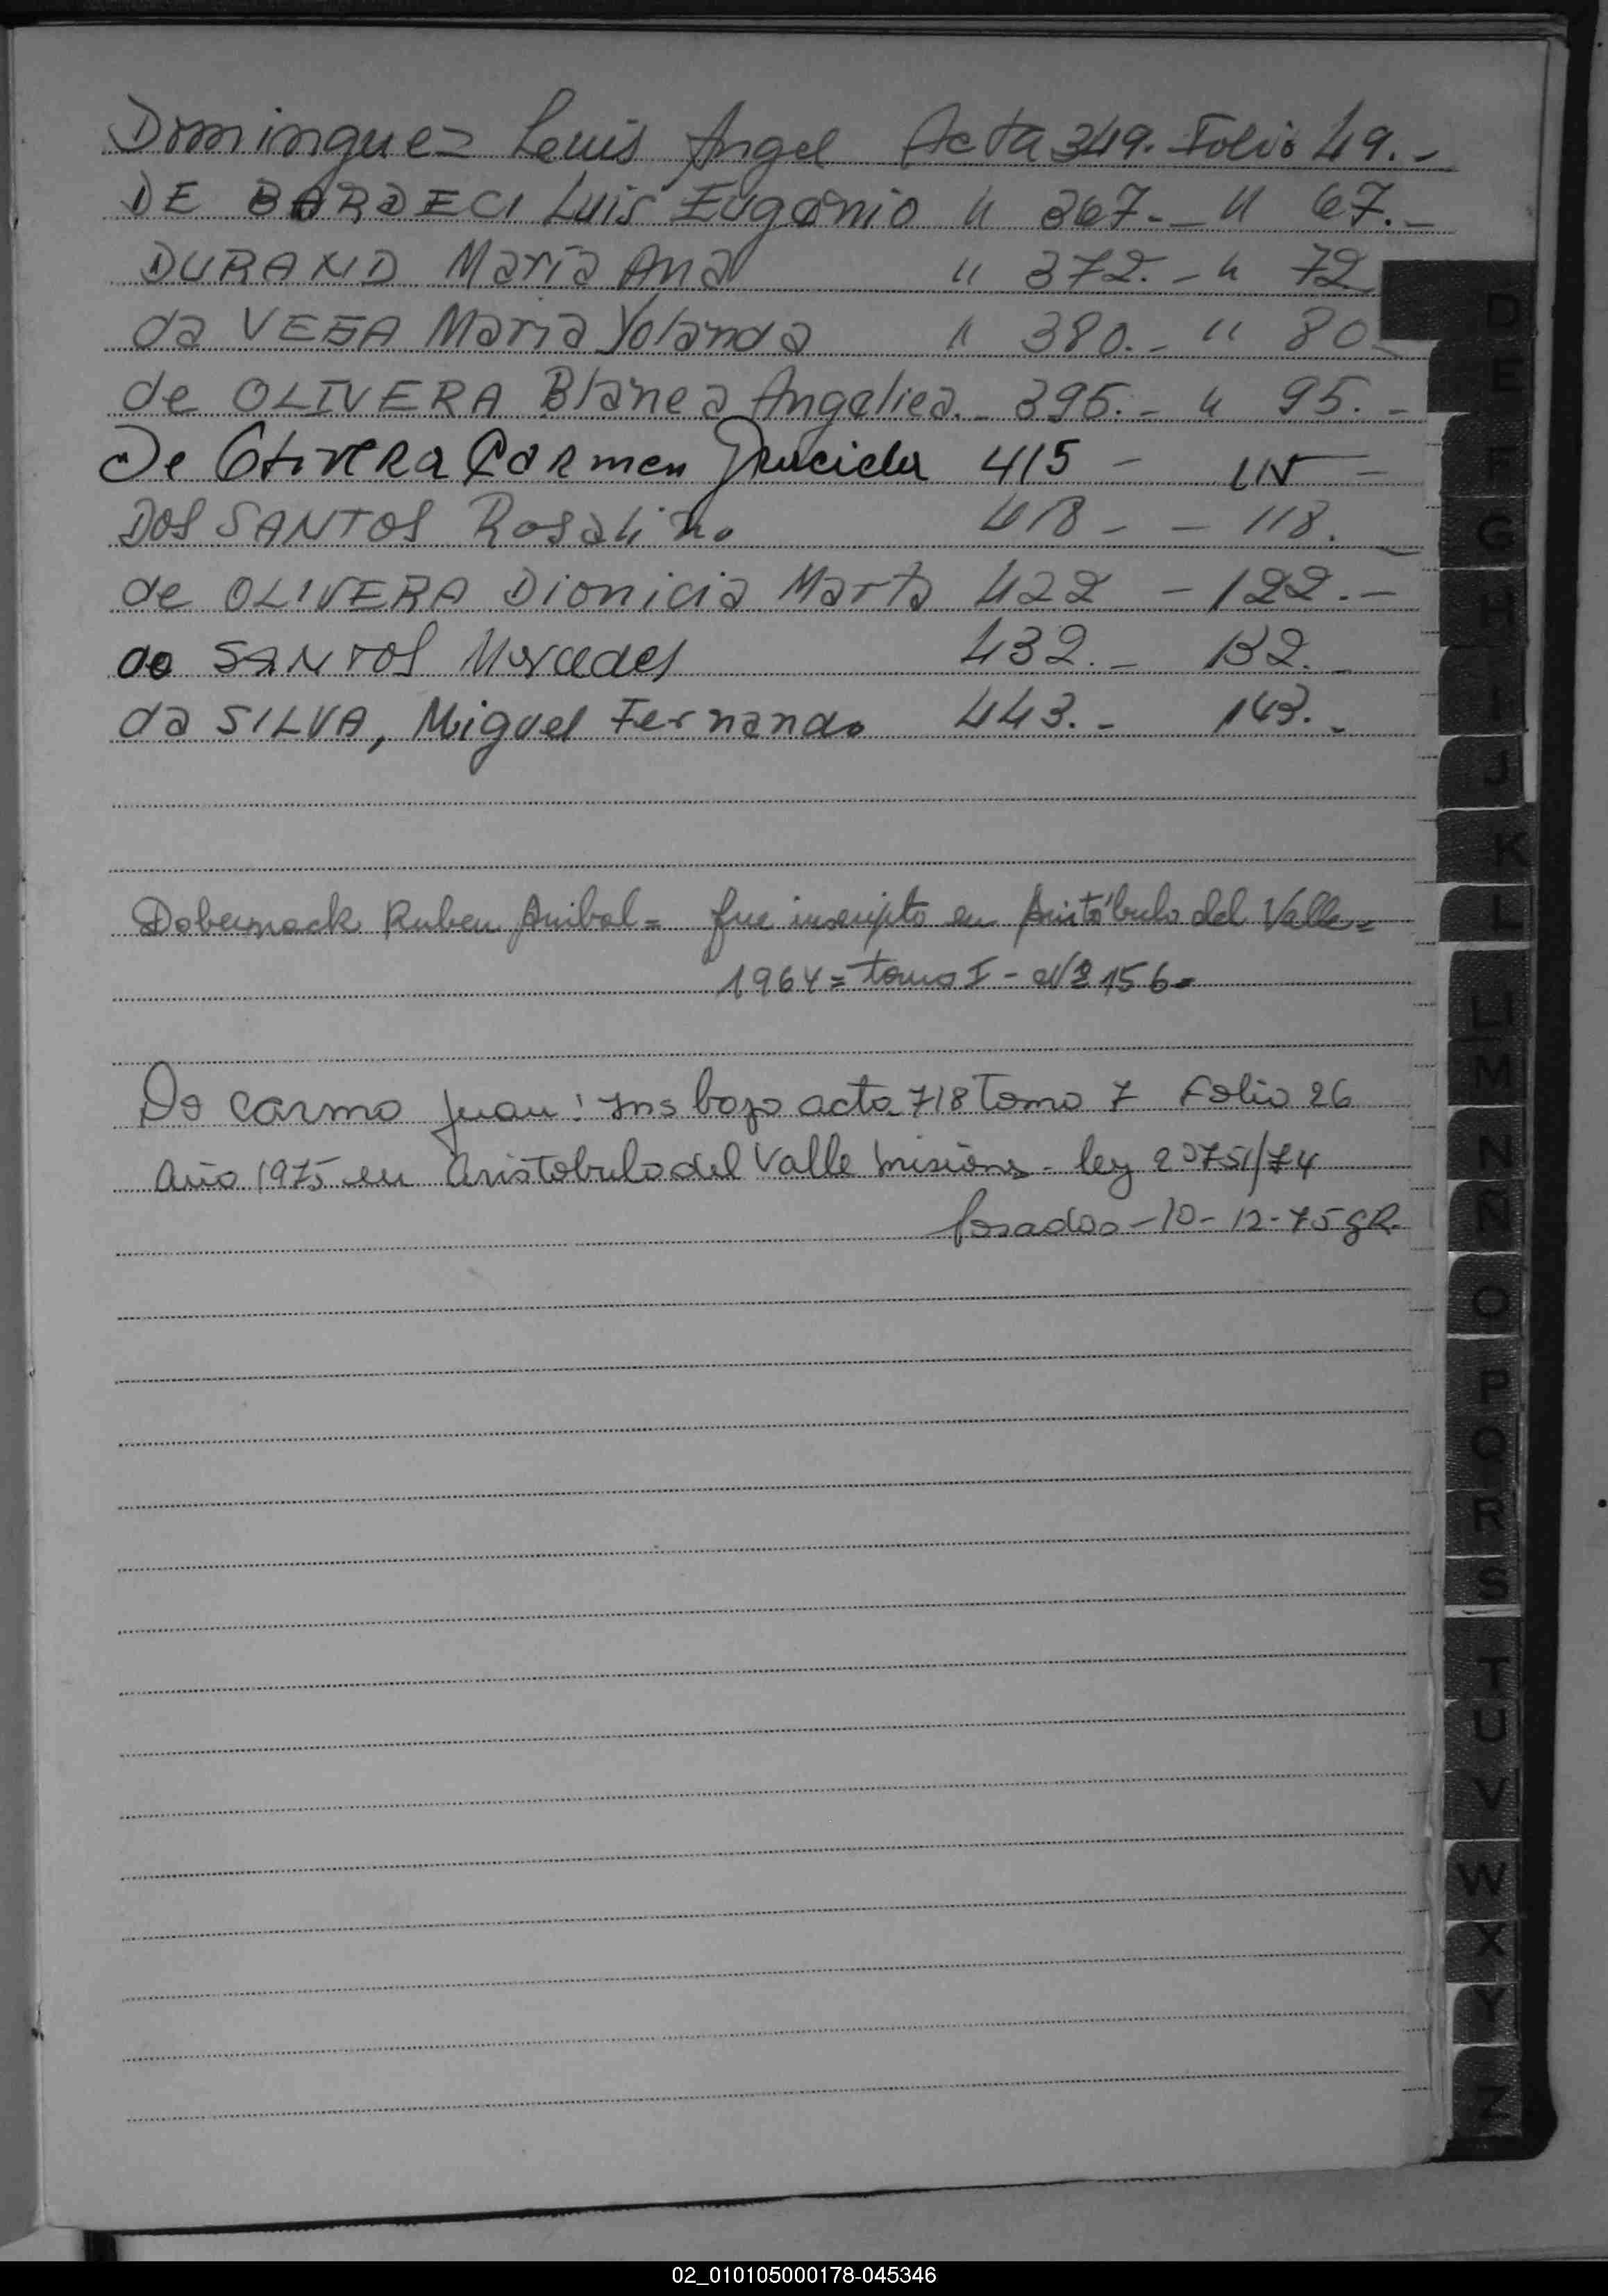 Dominguez Luis Angel Acta 349. Folio 49.-
DE BARDECI Luis Eugenio " 367.- " 67.-
DURAND Maria Ana " 372.- " 72
da VEGA Maria Yolanda " 380.- " 80-
de OLIVERA Blanca Angelica. 395.- " 95.-
De Olivera Carmen Graciela 415 - 115 =
DOS SANTOS Rosalino 418 - - 118.
de OLIVERA Dionicia Marta 422 - 122.-
do SANTOS Mercedes 432.- 132.-
da SILVA, Miguel Fernando 443.- 143.-
Dobernack Ruben Anibal = fue inscripto en Aristóbulo del Valle =
1964 = tomo I - Nº 156 =
Do Carmo Juan: Ins bajo acta 718 Tomo 7 Folio 26
Año 1975 en Aristobulo del Valle Misiones - ley 20751/74
Posadas - 10-12-75 GR.
D
E
F
G
H
I
J
K
L
LL
M
N
Ñ
O
P
Q
R
S
T
U
V
W
X
Y
Z
02_010105000178-045346